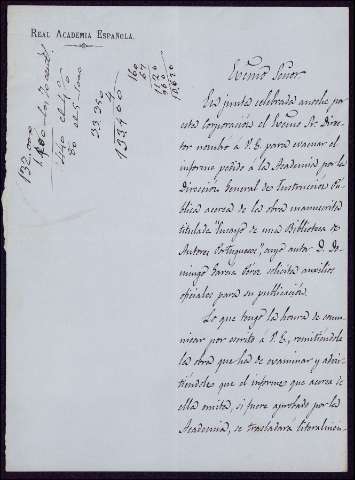 REAL ACADEMIA ESPAÑOLA.
Excmo Señor
En junta celebrada anoche por
esta Corporación el Excmo Sr. Di-
rector nombró á V. E. para evacuar el
informe pedido á la Academia por la
Dirección General de Instrucción Pú-
blica acerca de la obra manuscrita
titulada "Ensayo de una Biblioteca de
Autores Portugueses", cuyo autor D. Do-
mingo Garcia Pérez solicita auxilios
oficiales para su publicación.
Lo que tengo la honra de comu-
nicar por escrito á V. E., remitiéndole
la obra que ha de examinar y advir-
tiéndole que el informe que acerca de
ella emita, si fuere aprobado por la
Academia, se trasladará literalmen-
160
67
1120
960
23.250
4